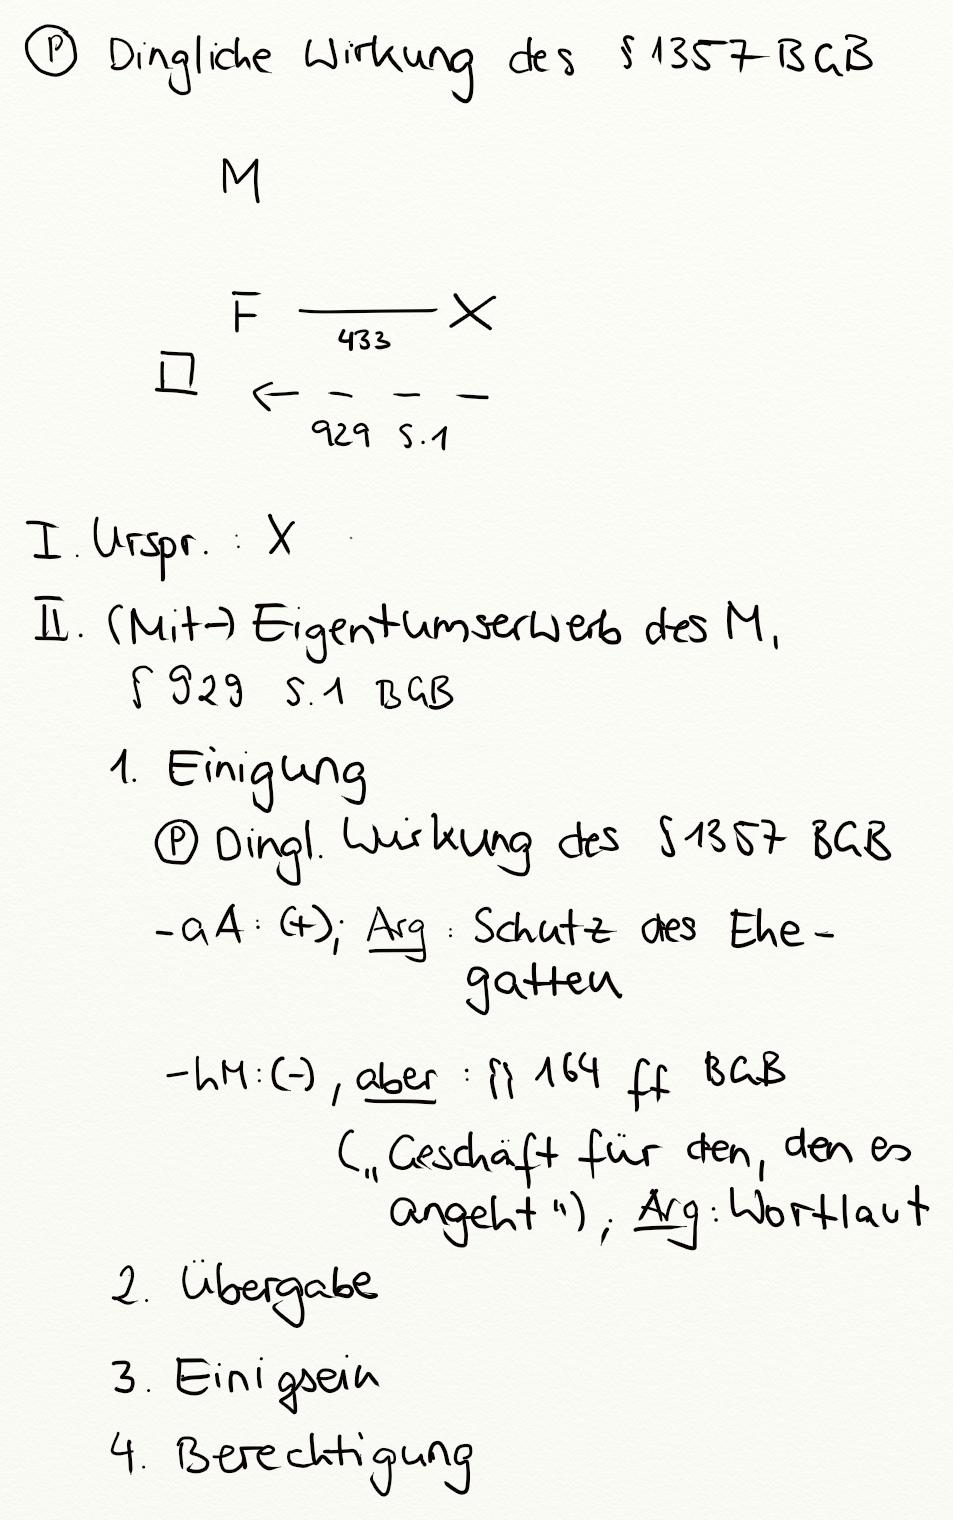 Ⓟ Dingliche Wirkung des § 1357 BGB
M
F X
433
929 S.1
I. Urspr. : X
II. (Mit-) Eigentumserwerb des M,
§ 929 S.1 BGB
1. Einigung
Ⓟ Dingl. Wirkung des § 1357 BGB
- aA: (+); Arg : Schutz des Ehe-
gatten
- hM: (-), aber : §§ 164 ff BGB
(„Geschäft für den, den es
angeht"); Arg: Wortlaut
2. Übergabe
3. Einigsein
4. Berechtigung